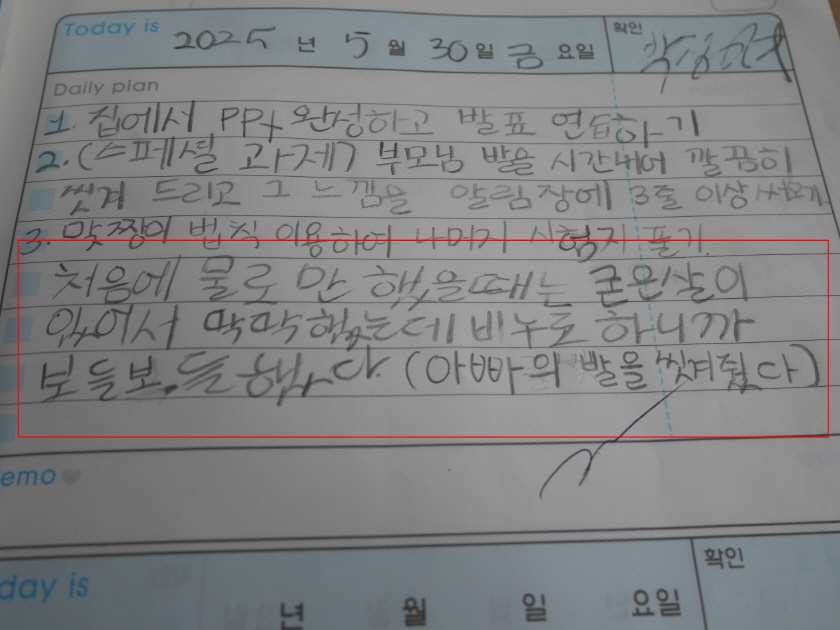 Today is 2025 년 5 월 30 일 금 요일 확인
Daily plan
1. 집에서 PPt 완성하고 발표 연습하기
2. (스페셜 과제) 부모님 발을 시간내어 깔끔히
씻겨 드리고 그 느낌을 알림장에 3줄 이상 써오기.
3. 맞짱의 법칙 이용하여 나머지 시험지 풀기.
처음에 물로 만 했을때는 굳은살이
있어서 딱딱했는데 비누로 하니까
보들보들했다. (아빠의 발을 씻겨줬다)
emo
day is 년 월 일 요일 확인